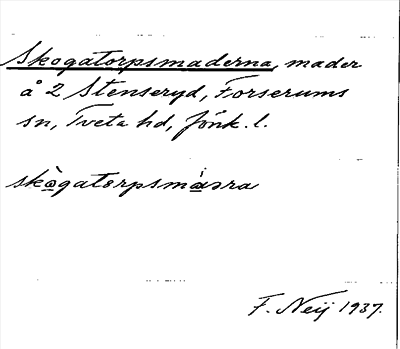 Skogatorpsmaderna, mader
å 2 Stenseryd, Forserums
sn, Tveta hd, Jönk. l.
skògatorpsmásra
F. Neij 1937.